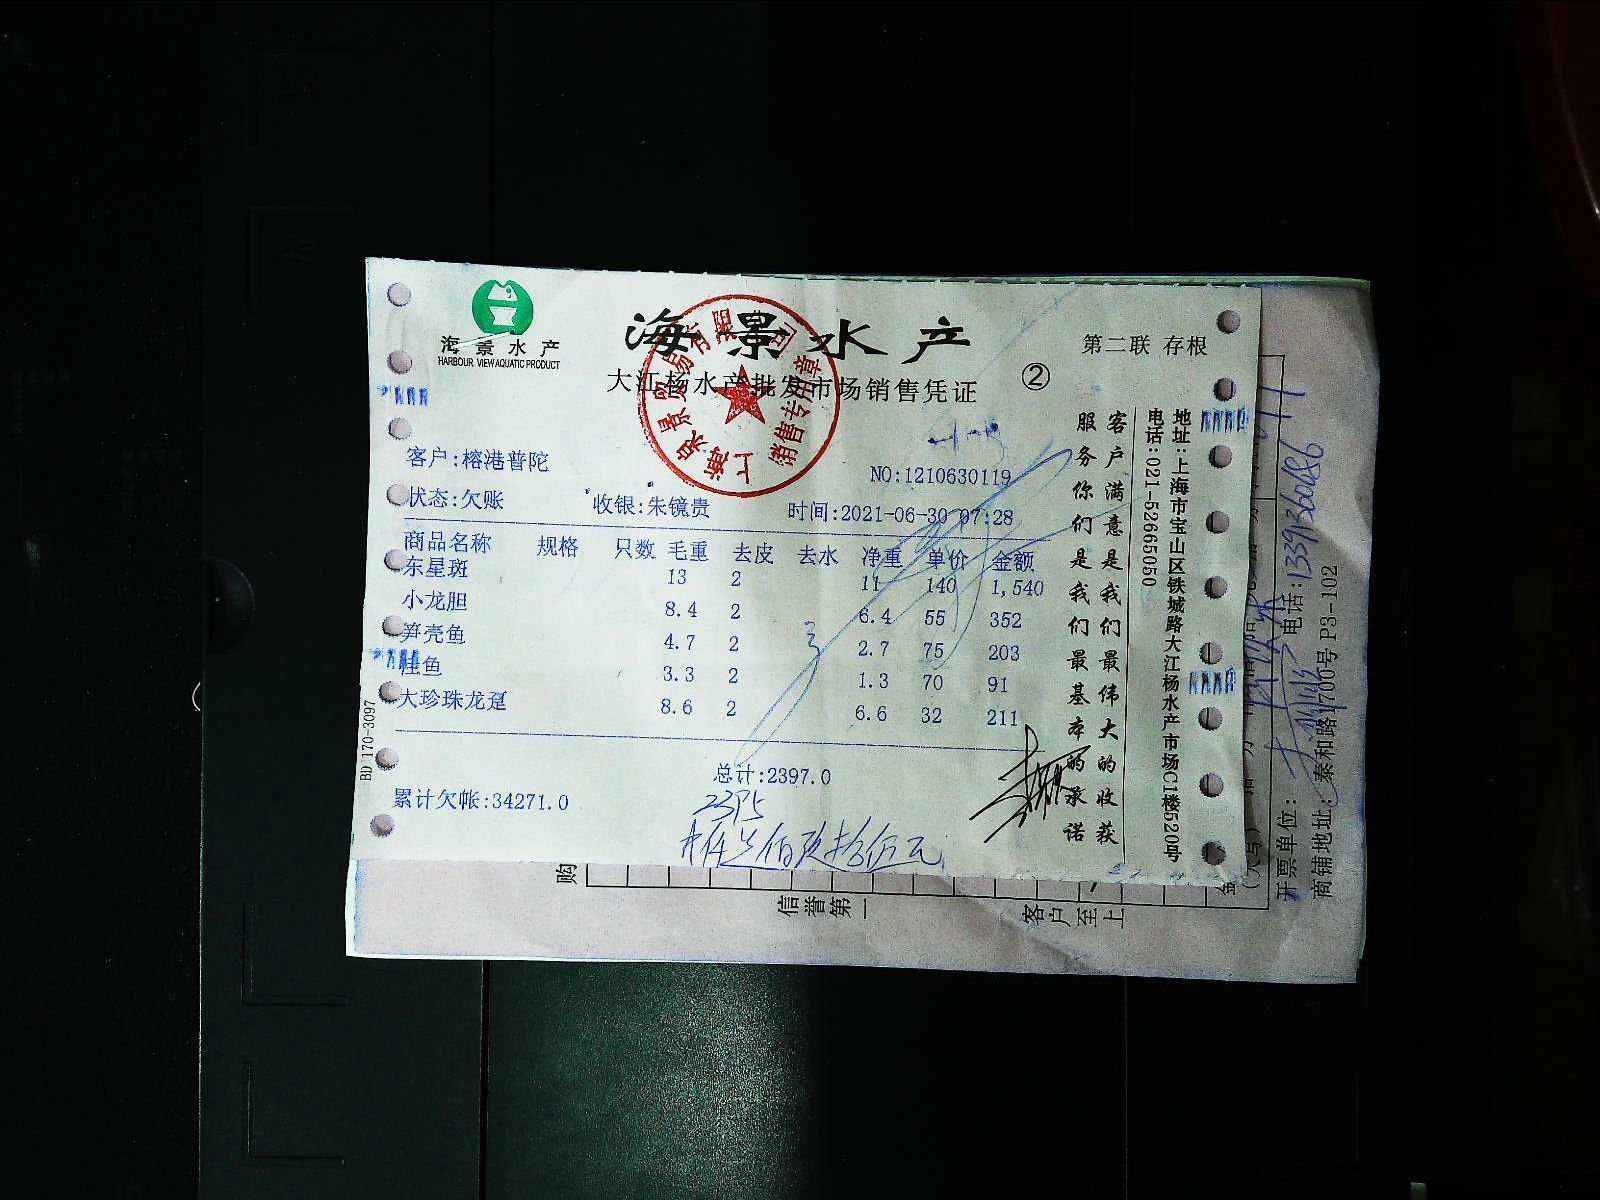 海景水产
HARBOUR VIEW AQUATIC PRODUCT
海景水产
大江杨水产批发市场销售凭证
②
第二联 存根
销售专用章
客户:榕港普陀
NO:1210630119
状态:欠账 收银:朱镜贵 时间:2021-06-30 07:28
商品名称 规格 只数 毛重 去皮 去水 净重 单价 金额
东星斑 13 2 11 140 1,540
小龙胆 8.4 2 6.4 55 352
笋壳鱼 4.7 2 2.7 75 203
桂鱼 3.3 2 1.3 70 91
大珍珠龙趸 8.6 2 6.6 32 211
总计:2397.0
累计欠帐:34271.0
BD 170-3097
客户满意是我们最伟大的收获
服务你们是我们最基本的承诺
地址:上海市宝山区铁城路大江杨水产市场C1楼520号
电话:021-52665050
购
信誉第一
客户至上
开票单位:
电话:13391360486
商铺地址:泰和路1700号 P3-102